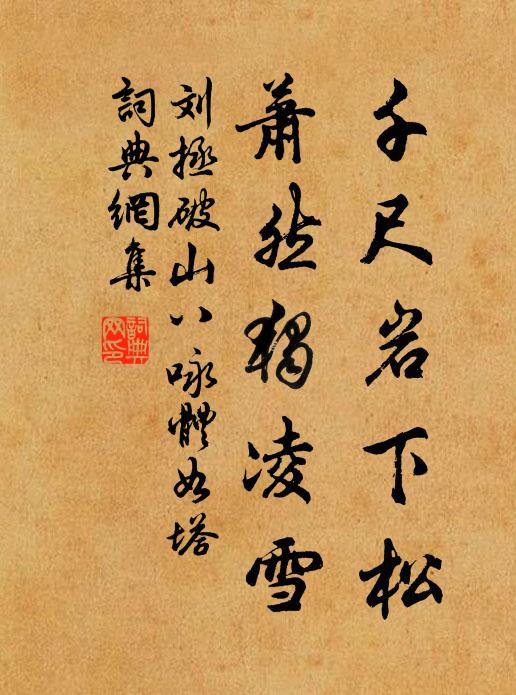 千尺岩下松
萧然独凌雪
刘拯破山八咏體如塔
詞典網集
詞典网印